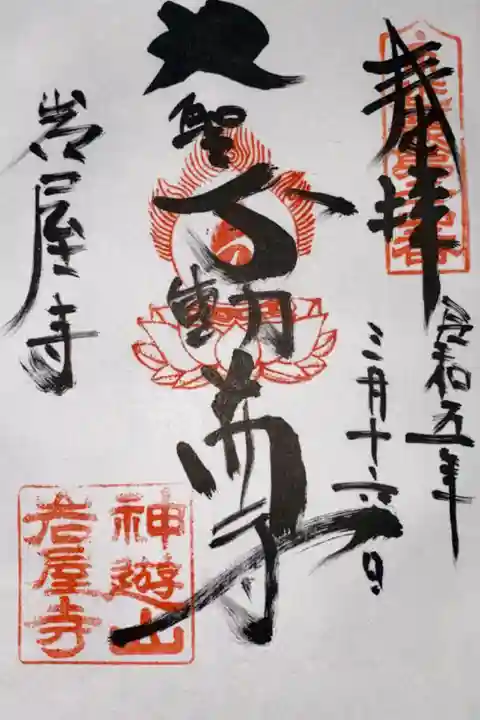 奉拝
令和五年
三月十六日
大聖不動明尊
岩屋寺
神遊山
岩屋寺